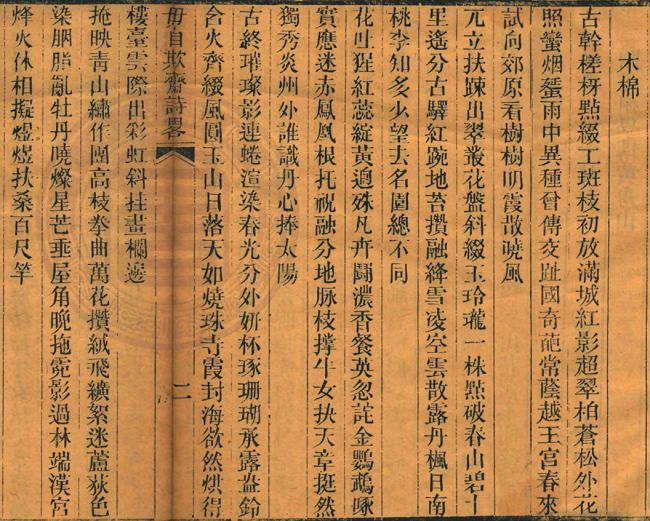 木棉
古幹槎枒點綴工斑枝初放滿城紅影超翠柏蒼松外花
照蠻烟蜑雨中異種曾傳交趾國奇葩常蔭越王宮春來
試向郊原看樹樹明霞散曉風
元立扶踈出翠叢花盤斜綴玉玲瓏一株點破春山碧十
里遙分古驛紅踠地苔攢融絳雪凌空雲散露丹楓日南
桃李知多少望去名園總不同
花吐猩紅蕊綻黃逈殊凡卉鬪濃香餐英忽詫金鸚鵡啄
實應迷赤鳳凰根托祝融分地脉枝撐牛女抉天章挺然
獨秀炎州外誰識丹心捧太陽
古終璀璨影連蜷渲染春光分外妍杯琢珊瑚承露盎鈴
含火齊綴風圓玉山日落天如燒珠寺霞封海欲然烘得
毋自欺齋詩畧
二
樓臺雲際出彩虹斜挂畫欄邊
掩映青山繡作團高枝拳曲萬花攢絨飛纊絮迷蘆荻色
染胭脂亂牡丹曉燦星芒垂屋角晚拖霓影過林端漢宮
烽火休相擬煜煜扶桑百尺竿